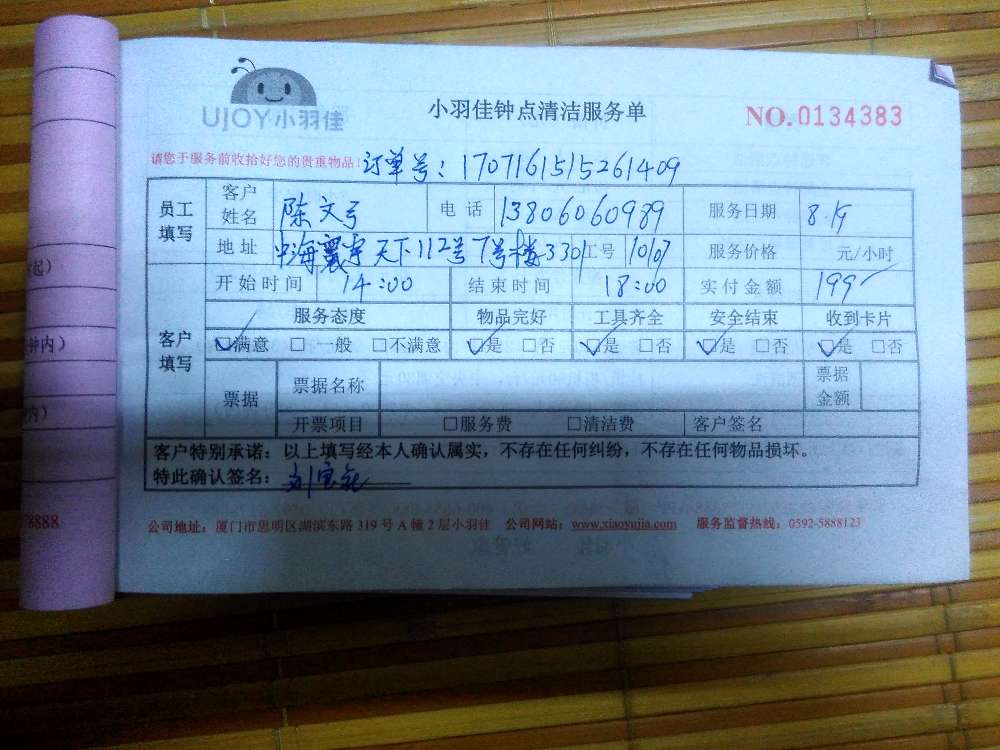 UJOY小羽佳
小羽佳钟点清洁服务单
NO.0134383
请您于服务前收拾好您的贵重物品!
订单号：1707161515261409
员工填写 客户姓名 陈文弓 电话 13806060989 服务日期 8.19
地址 中海寰宇天下112号7号楼3301 工号 1007 服务价格 元/小时
开始时间 14:00 结束时间 18:00 实付金额 199
客户填写 服务态度 物品完好 工具齐全 安全结束 收到卡片
☑满意 □一般 □不满意 ☑是 □否 ☑是 □否 ☑是 □否 ☑是 □否
票据 票据名称 票据金额
开票项目 □服务费 □清洁费 客户签名
客户特别承诺：以上填写经本人确认属实，不存在任何纠纷，不存在任何物品损坏。
特此确认签名：
公司地址：厦门市思明区湖滨东路 319 号 A 幢 2 层小羽佳 公司网站：www.xiaoyujia.com 服务监督热线：0592-5888123
起）
钟内）
内）
8888